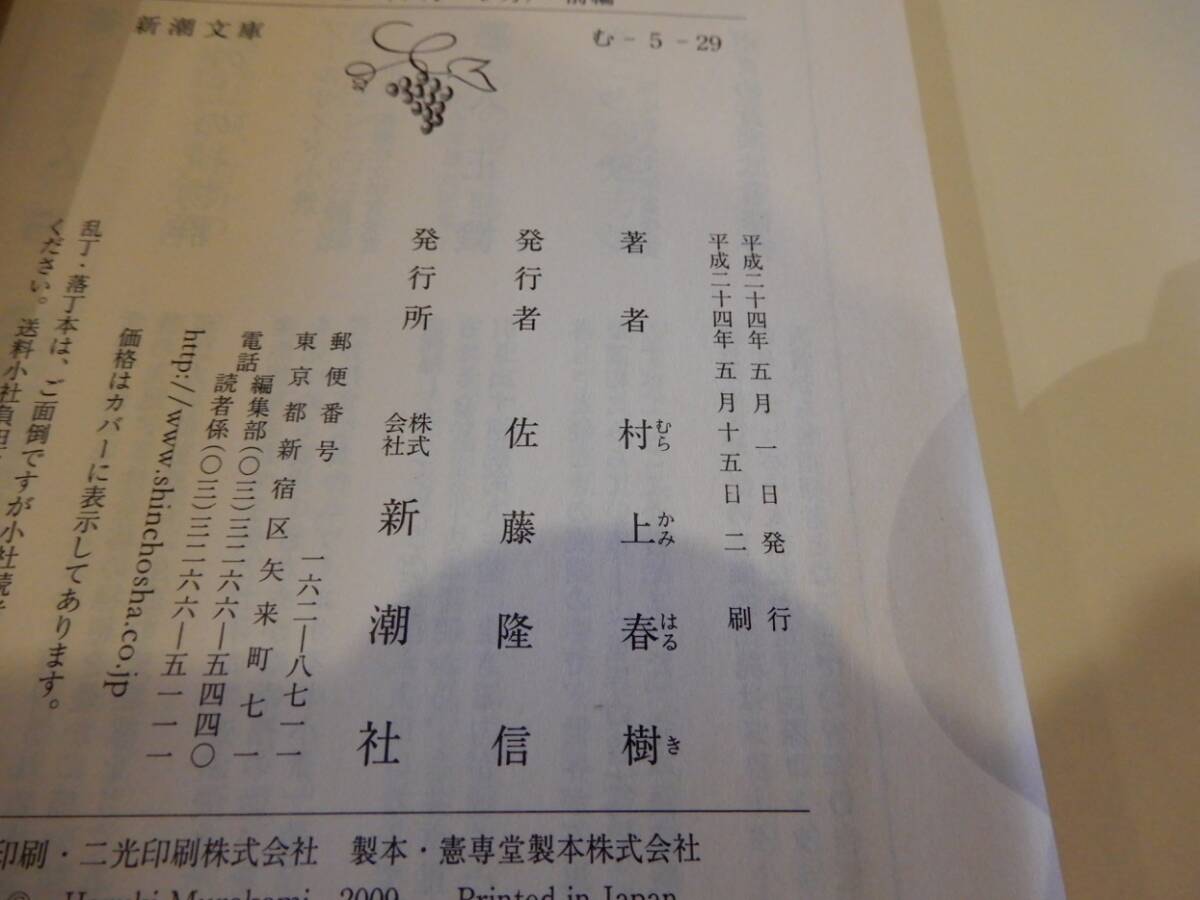 前編
新潮文庫
む-5-29
平成二十四年五月一日発行
平成二十四年五月十五日二刷
著者 村上春樹
むら かみ はる き
発行者 佐藤隆信
発行所 株式会社 新潮社
郵便番号 一六二―八七一一
東京都新宿区矢来町七一
電話 編集部(〇三)三二六六―五四四〇
読者係(〇三)三二六六―五一一一
http://www.shinchosha.co.jp
価格はカバーに表示してあります。
乱丁・落丁本は、ご面倒ですが小社読
ください。送料小社負担
印刷・二光印刷株式会社 製本・憲専堂製本株式会社
© Haruki Murakami 2009 Printed in Japan